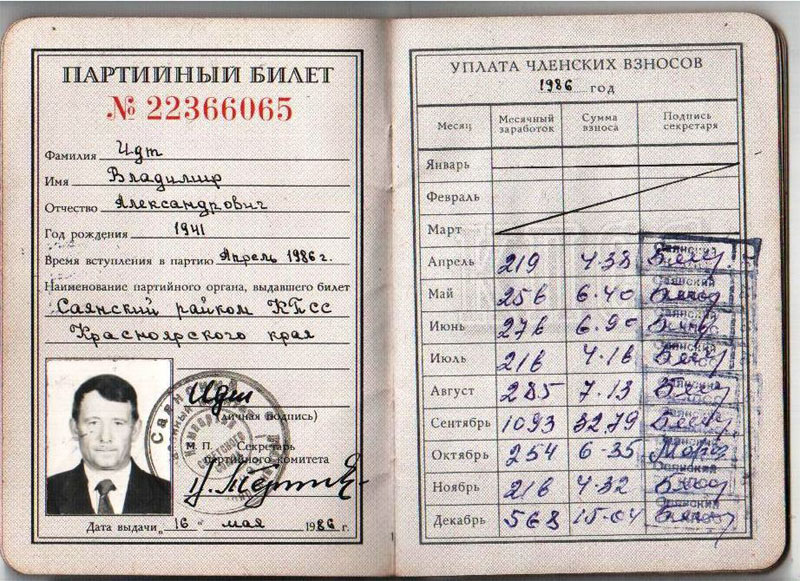 ПАРТИЙНЫЙ БИЛЕТ
№ 22366065
Фамилия Идт
Имя Владимир
Отчество Александрович
Год рождения 1941
Время вступления в партию Апрель 1986 г.
Наименование партийного органа, выдавшего билет
Саянский райком КПСС
Красноярского края
Идт
(личная подпись)
М. П. Секретарь
партийного комитета
Дата выдачи „16 " мая 1986 г.
УПЛАТА ЧЛЕНСКИХ ВЗНОСОВ
1986 год
Месяц Месячный заработок Сумма взноса Подпись секретаря
Январь
Февраль
Март
Апрель 219 4-38
Май 256 6-40
Июнь 276 6-90
Июль 216 4-16
Август 285 7-13
Сентябрь 1093 32,79
Октябрь 254 6-35
Ноябрь 216 4-32
Декабрь 568 15-04
Саянский